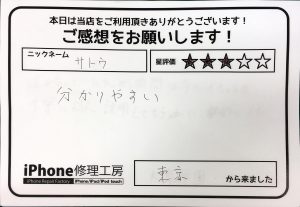 本日は当店をご利用頂きありがとうございます！
ご感想をお願いします！
ニックネーム
サトウ
星評価 ★★★☆☆
分かりやすい
iPhone修理工房
iPhone Repair Factory iPhone/iPad/iPod touch
東京 から来ました